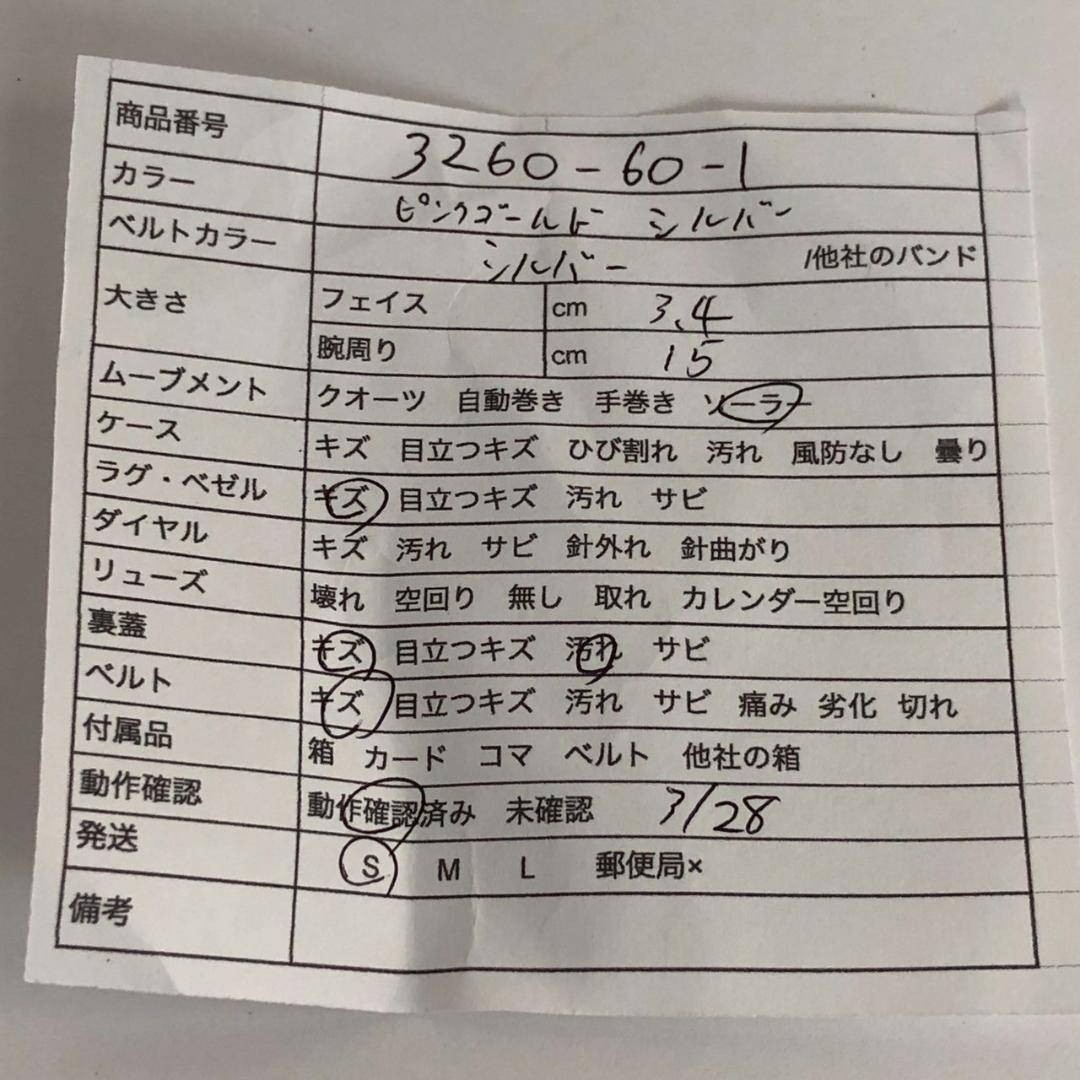 商品番号 3260-60-1
カラー ピンクゴールド シルバー
ベルトカラー シルバー /他社のバンド
大きさ フェイス cm 3.4
腕周り cm 15
ムーブメント クオーツ 自動巻き 手巻き ソーラー
ケース キズ 目立つキズ ひび割れ 汚れ 風防なし 曇り
ラグ・ベゼル キズ 目立つキズ 汚れ サビ
ダイヤル キズ 汚れ サビ 針外れ 針曲がり
リューズ 壊れ 空回り 無し 取れ カレンダー空回り
裏蓋 キズ 目立つキズ 汚れ サビ
ベルト キズ 目立つキズ 汚れ サビ 痛み 劣化 切れ
付属品 箱 カード コマ ベルト 他社の箱
動作確認 動作確認済み 未確認 3/28
発送 S M L 郵便局×
備考